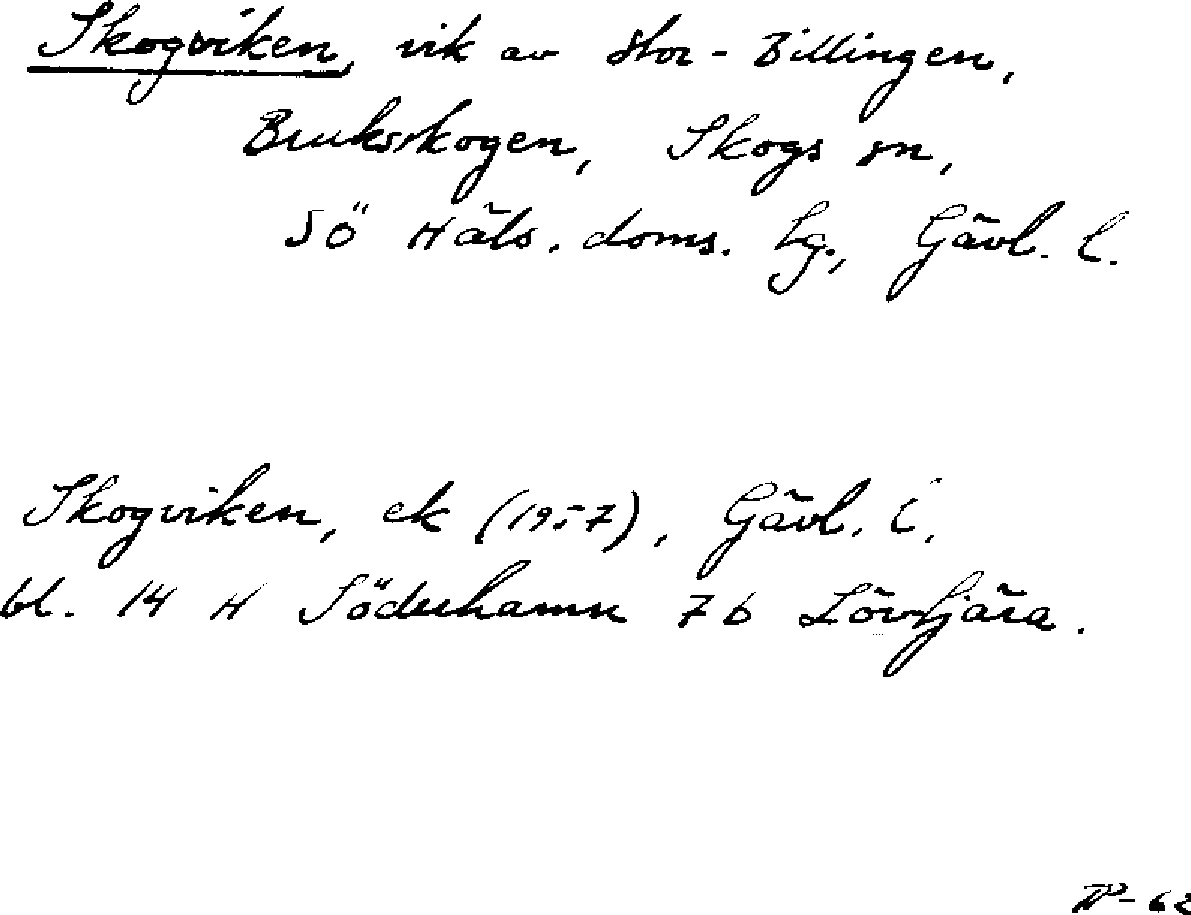 Skogviken, vik av Stor-Billingen,
Bruksskogen, Skogs sn,
Sö Häls. doms. lg., Gävl. l.
Skogviken, ek (1957), Gävl. l.
bl. 14 H Söderhamn 7b Lövtjära.
-62